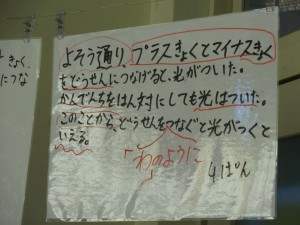 よそう通り、プラスきょくとマイナスきょく
をどうせんにつなげると、光がついた。
かんでんちをはん対にしても光はついた。
このことから、どうせんをつなぐと光がつくと
いえる。
「わのように」
4ぱん
きょく、
につな